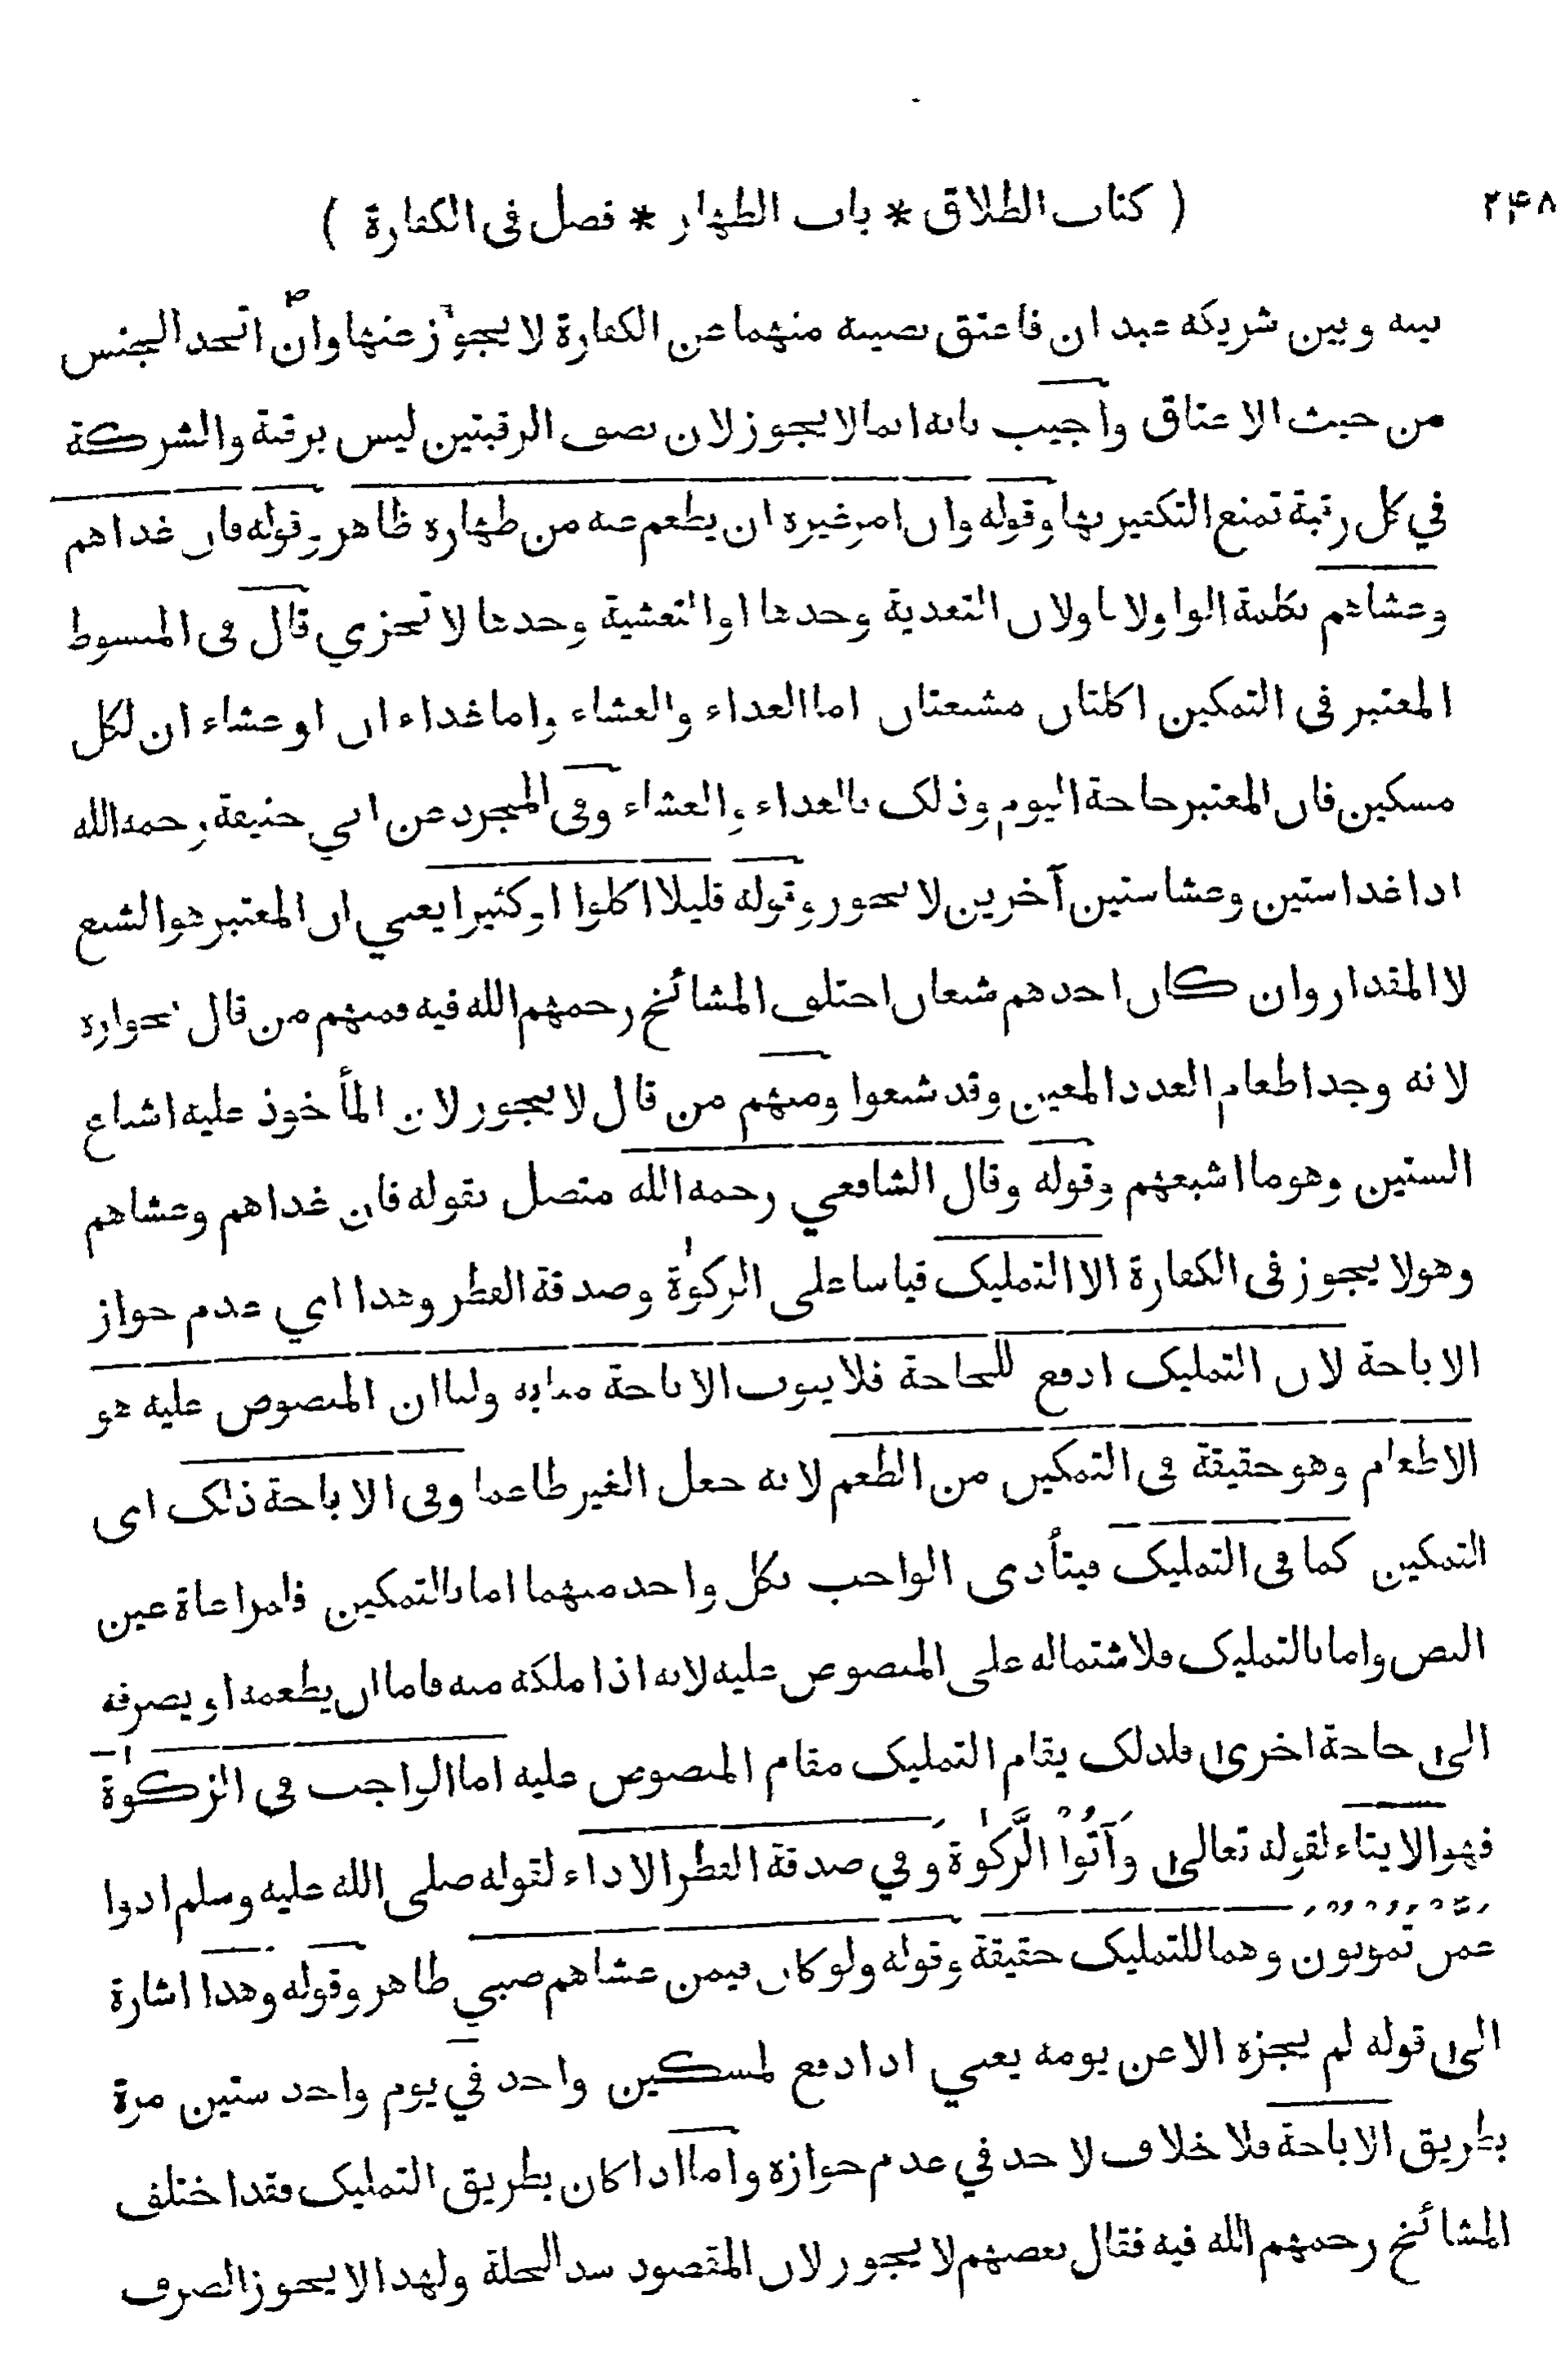 ۲۴۸
( كتاب الطلاق * باب الظهار * فصل فى الكفارة )
بينه وبين شريكه عبد ان فاعتق نصيبه منهما عن الكفارة لا يجوز عنها وان اتحد الجنس
من حيث الاعتاق واجيب بانه انما لا يجوز لان نصف الرقبتين ليس برقبة والشركة
في كل رقبة تمنع التكفير بها وقوله وان امر غيره ان يطعم عنه من ظهاره ظاهر وقوله فان غداهم
وعشاهم بكلمة الواو لا باو لان التغدية وحدها او التعشية وحدها لا تجزي قال فى المبسوط
المعتبر فى التمكين اكلتان مشبعتان اما الغداء والعشاء واما غداء ان او عشاء ان لكل
مسكين فان المعتبر حاجة اليوم وذلك بالغداء والعشاء وفى المجرد عن ابي حنيفة رحمه الله
اذا غدا ستين وعشا ستين آخرين لا يجوز وقوله قليلا اكلوا او كثيرا يعني ان المعتبر هو الشبع
لا المقدار وان كان احدهم شبعان اختلف المشائخ رحمهم الله فيه فمنهم من قال بجوازه
لانه وجد اطعام العدد المعين وقد شبعوا ومنهم من قال لا يجوز لان المأخوذ عليه اشباع
الستين وهو ما اشبعهم وقوله وقال الشافعي رحمه الله متصل بقوله فان غداهم وعشاهم
وهو لا يجوز فى الكفارة الا التمليك قياسا على الزكوٰة وصدقة الفطر وهذا اي عدم جواز
الاباحة لان التمليك ادفع للحاجة فلا ينوب الاباحة منابه ولنا ان المنصوص عليه هو
الاطعام وهو حقيقة فى التمكين من الطعم لانه جعل الغير طاعما وفى الاباحة ذلك اى
التمكين كما فى التمليك فيتأدى الواجب بكل واحد منهما اما بالتمكين فلمراعاة عين
النص واما بالتمليك فلاشتماله على المنصوص عليه لانه اذا ملكه منه فاما ان يطعمه او يصرفه
الىٰ حاجة اخرىٰ فلذلك يقام التمليك مقام المنصوص عليه اما الواجب فى الزكوٰة
فهو الايتاء لقوله تعالىٰ وَآتُوْا الزَّكوٰةَ وفي صدقة الفطر الاداء لقوله صلى الله عليه وسلم ادوا
عمن تمونون وهما للتمليك حقيقة وقوله ولو كان فيمن عشاهم صبي ظاهر وقوله وهذا اشارة
الىٰ قوله لم يجزه الا عن يومه يعني اذا دفع لمسكين واحد في يوم واحد ستين مرة
بطريق الاباحة فلا خلاف لاحد في عدم جوازه واما اذا كان بطريق التمليك فقد اختلف
المشائخ رحمهم الله فيه فقال بعضهم لا يجوز لان المقصود سد الخلة ولهذا لا يجوز الصرف